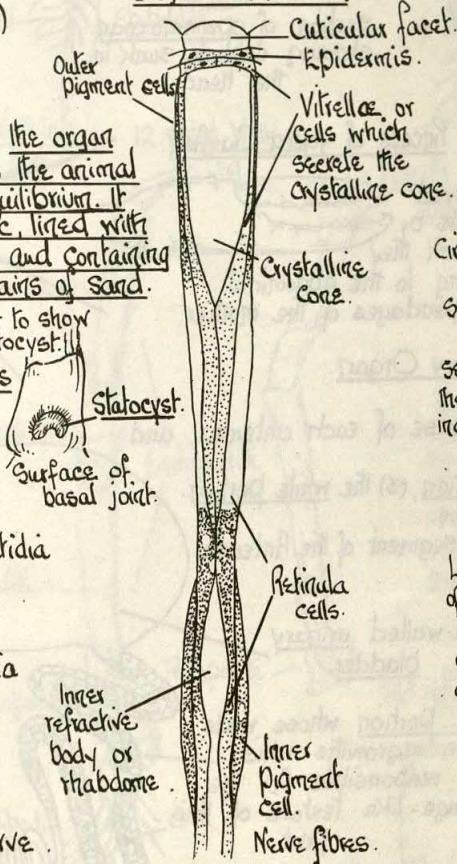 Cuticular facet.
Epidermis.
Outer
Pigment cells
Vitrellae or
cells which
secrete the
Crystalline cone.
the organ
the animal
quilibrium. It
c, lined with
and containing
ains of sand.
Crystalline
cone.
to show
rocyst.
Statocyst.
Surface of
basal joint.
tidia
Retinula
cells.
Inner
refractive
body or
rhabdome.
Inner
Pigment
cell.
Nerve fibres.